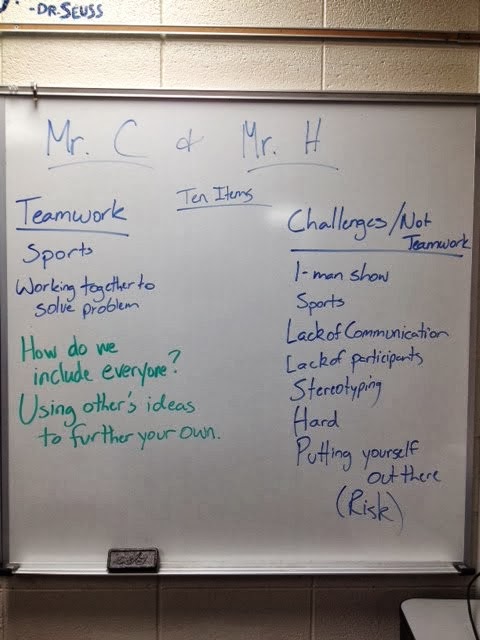 -DR. SEUSS
Mr. C & Mr. H
Ten Items
Teamwork
Sports
Working together to
solve problem
How do we
include everyone?
Using other's ideas
to further your own.
Challenges/Not
Teamwork
1-man show
Sports
Lack of Communication
Lack of participants
Stereotyping
Hard
Putting yourself
out there
(Risk)